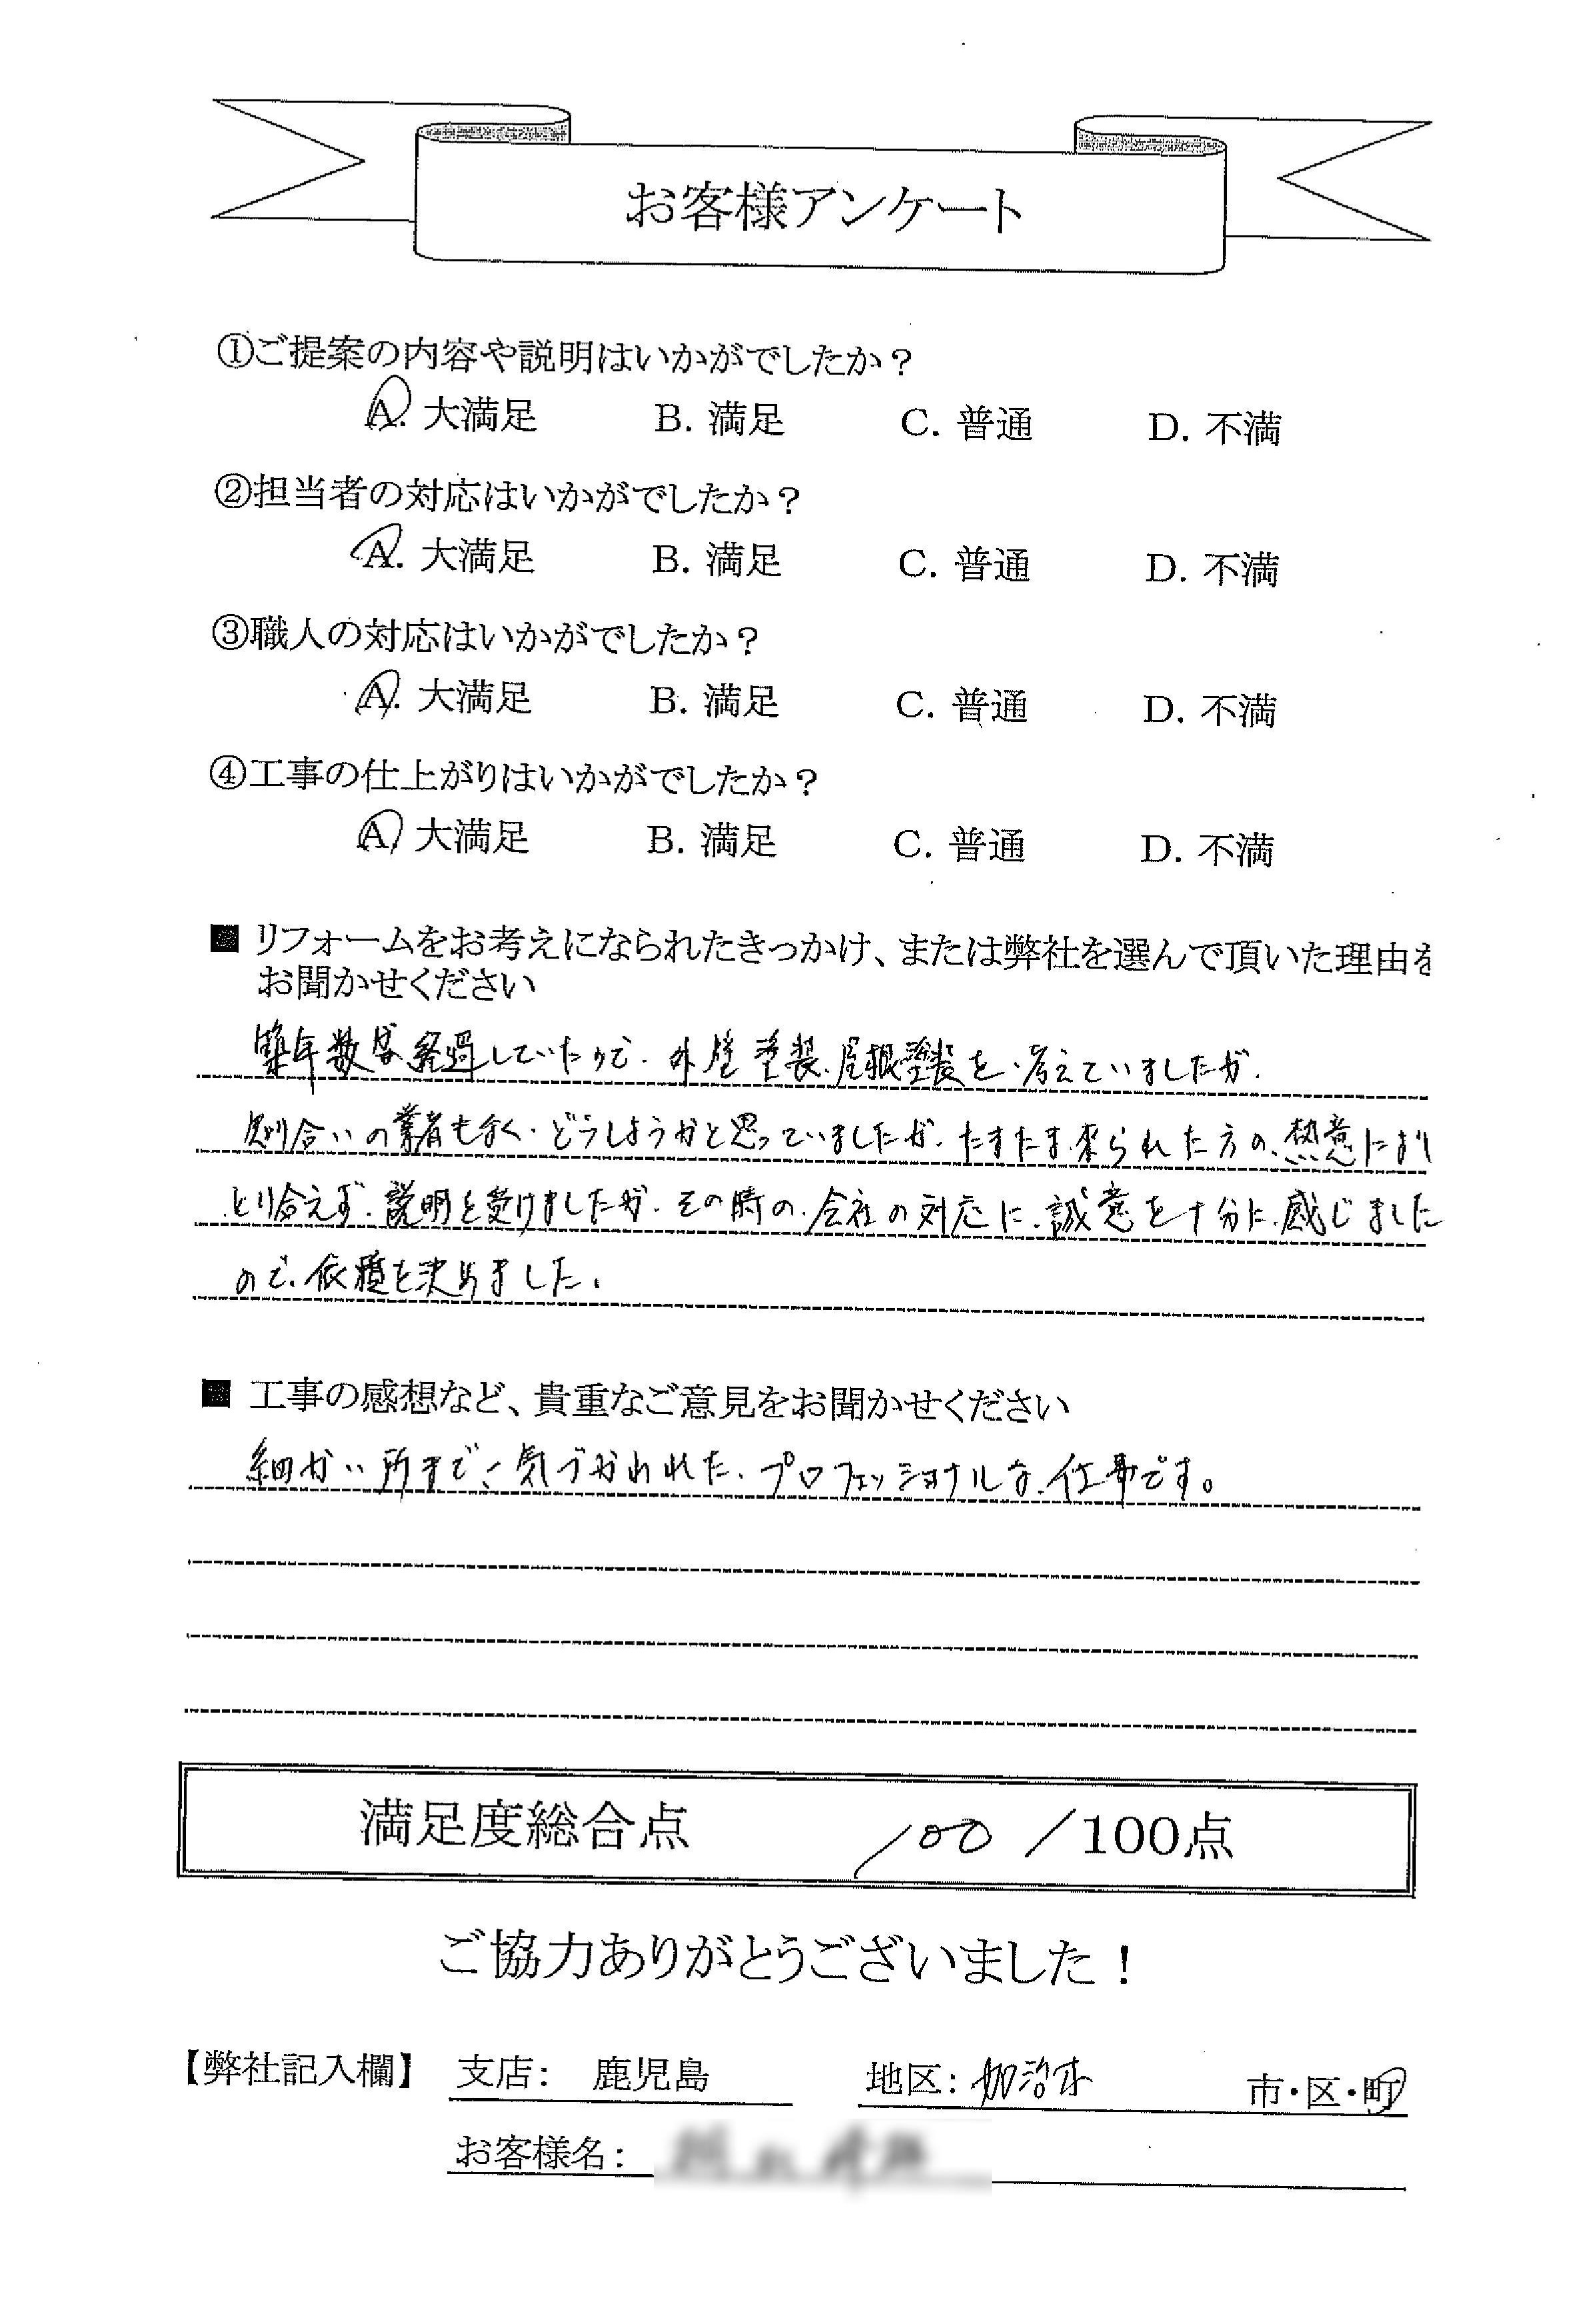 お客様アンケート
①ご提案の内容や説明はいかがでしたか？
A. 大満足 B. 満足 C. 普通 D. 不満
②担当者の対応はいかがでしたか？
A. 大満足 B. 満足 C. 普通 D. 不満
③職人の対応はいかがでしたか？
A. 大満足 B. 満足 C. 普通 D. 不満
④工事の仕上がりはいかがでしたか？
A. 大満足 B. 満足 C. 普通 D. 不満
■ リフォームをお考えになられたきっかけ、または弊社を選んで頂いた理由を
お聞かせください
築年数が経過していたので、外壁塗装、屋根塗装を、考えていましたが、
知り合いの業者もなく、どうしようかと思っていましたが、たまたま来られた方の、熱意により
とり合えず、説明を受けましたが、その時の、会社の対応に、誠意を十分に、感じました
ので、依頼を決めました。
■ 工事の感想など、貴重なご意見をお聞かせください
細かい所まで、気づかわれた、プロフェッショナルな、仕事です。
満足度総合点 100 ／100点
ご協力ありがとうございました！
【弊社記入欄】 支店： 鹿児島 地区：加治木 市・区・町
お客様名：